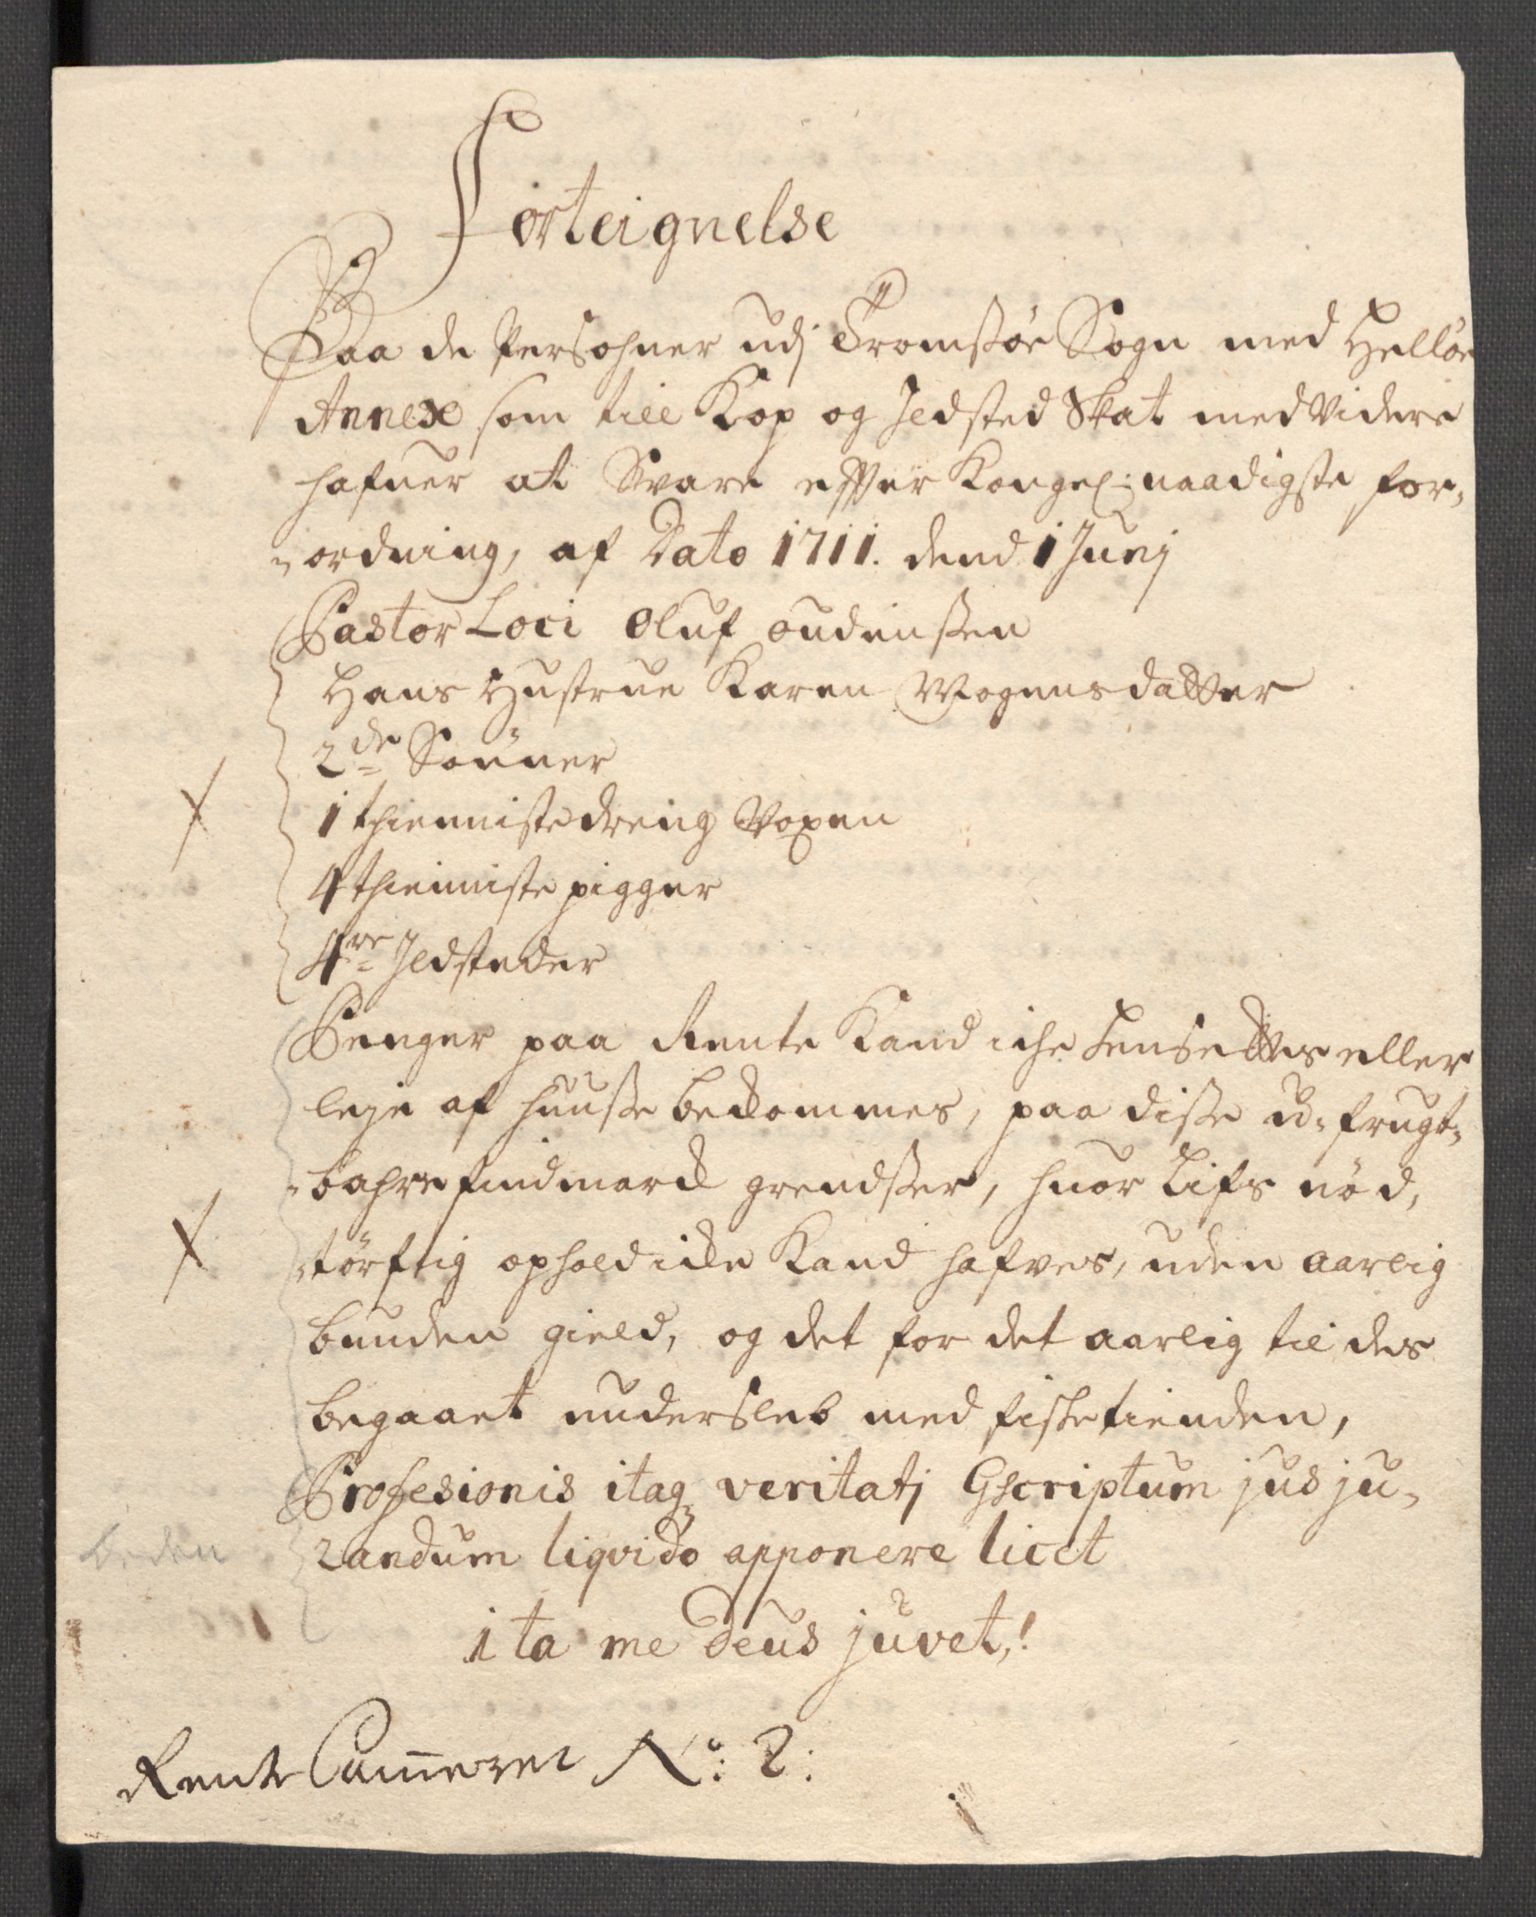 Forteignelse
Paa de Persohner udj Tromssøe Sogn med Helløe
Annex som till Kop og Jldsted Skat med Videre
hafuer at Svare effter Kongel: naadigste for,
"ordning, af Dato 1711. dend 1 Junj
Pastor Loci Oluf oudenssen
Hans Hustrue Karen Mogensdatter
2de Sönner
1 thienniste dreng Voxen
4 thienniste pigger
4re Jldsteder
Penger paa Rente Kand iche hensettes eller
leje af huusse bekommes, paa disse u-frugt-
"bahre findmark grendsser, huor Lifs nöd,
"törftig ophold icke Kand hafves, uden aarlig
bunden gield, og det for det aarlig til des
begaaet undersleb med fiske tienden,
Profesionis itaq veritatj Gscriptum jus ju-
randum liqvido apponere licet
ita me Deus juvet,!
beden
Rente Cammeret No: 2: